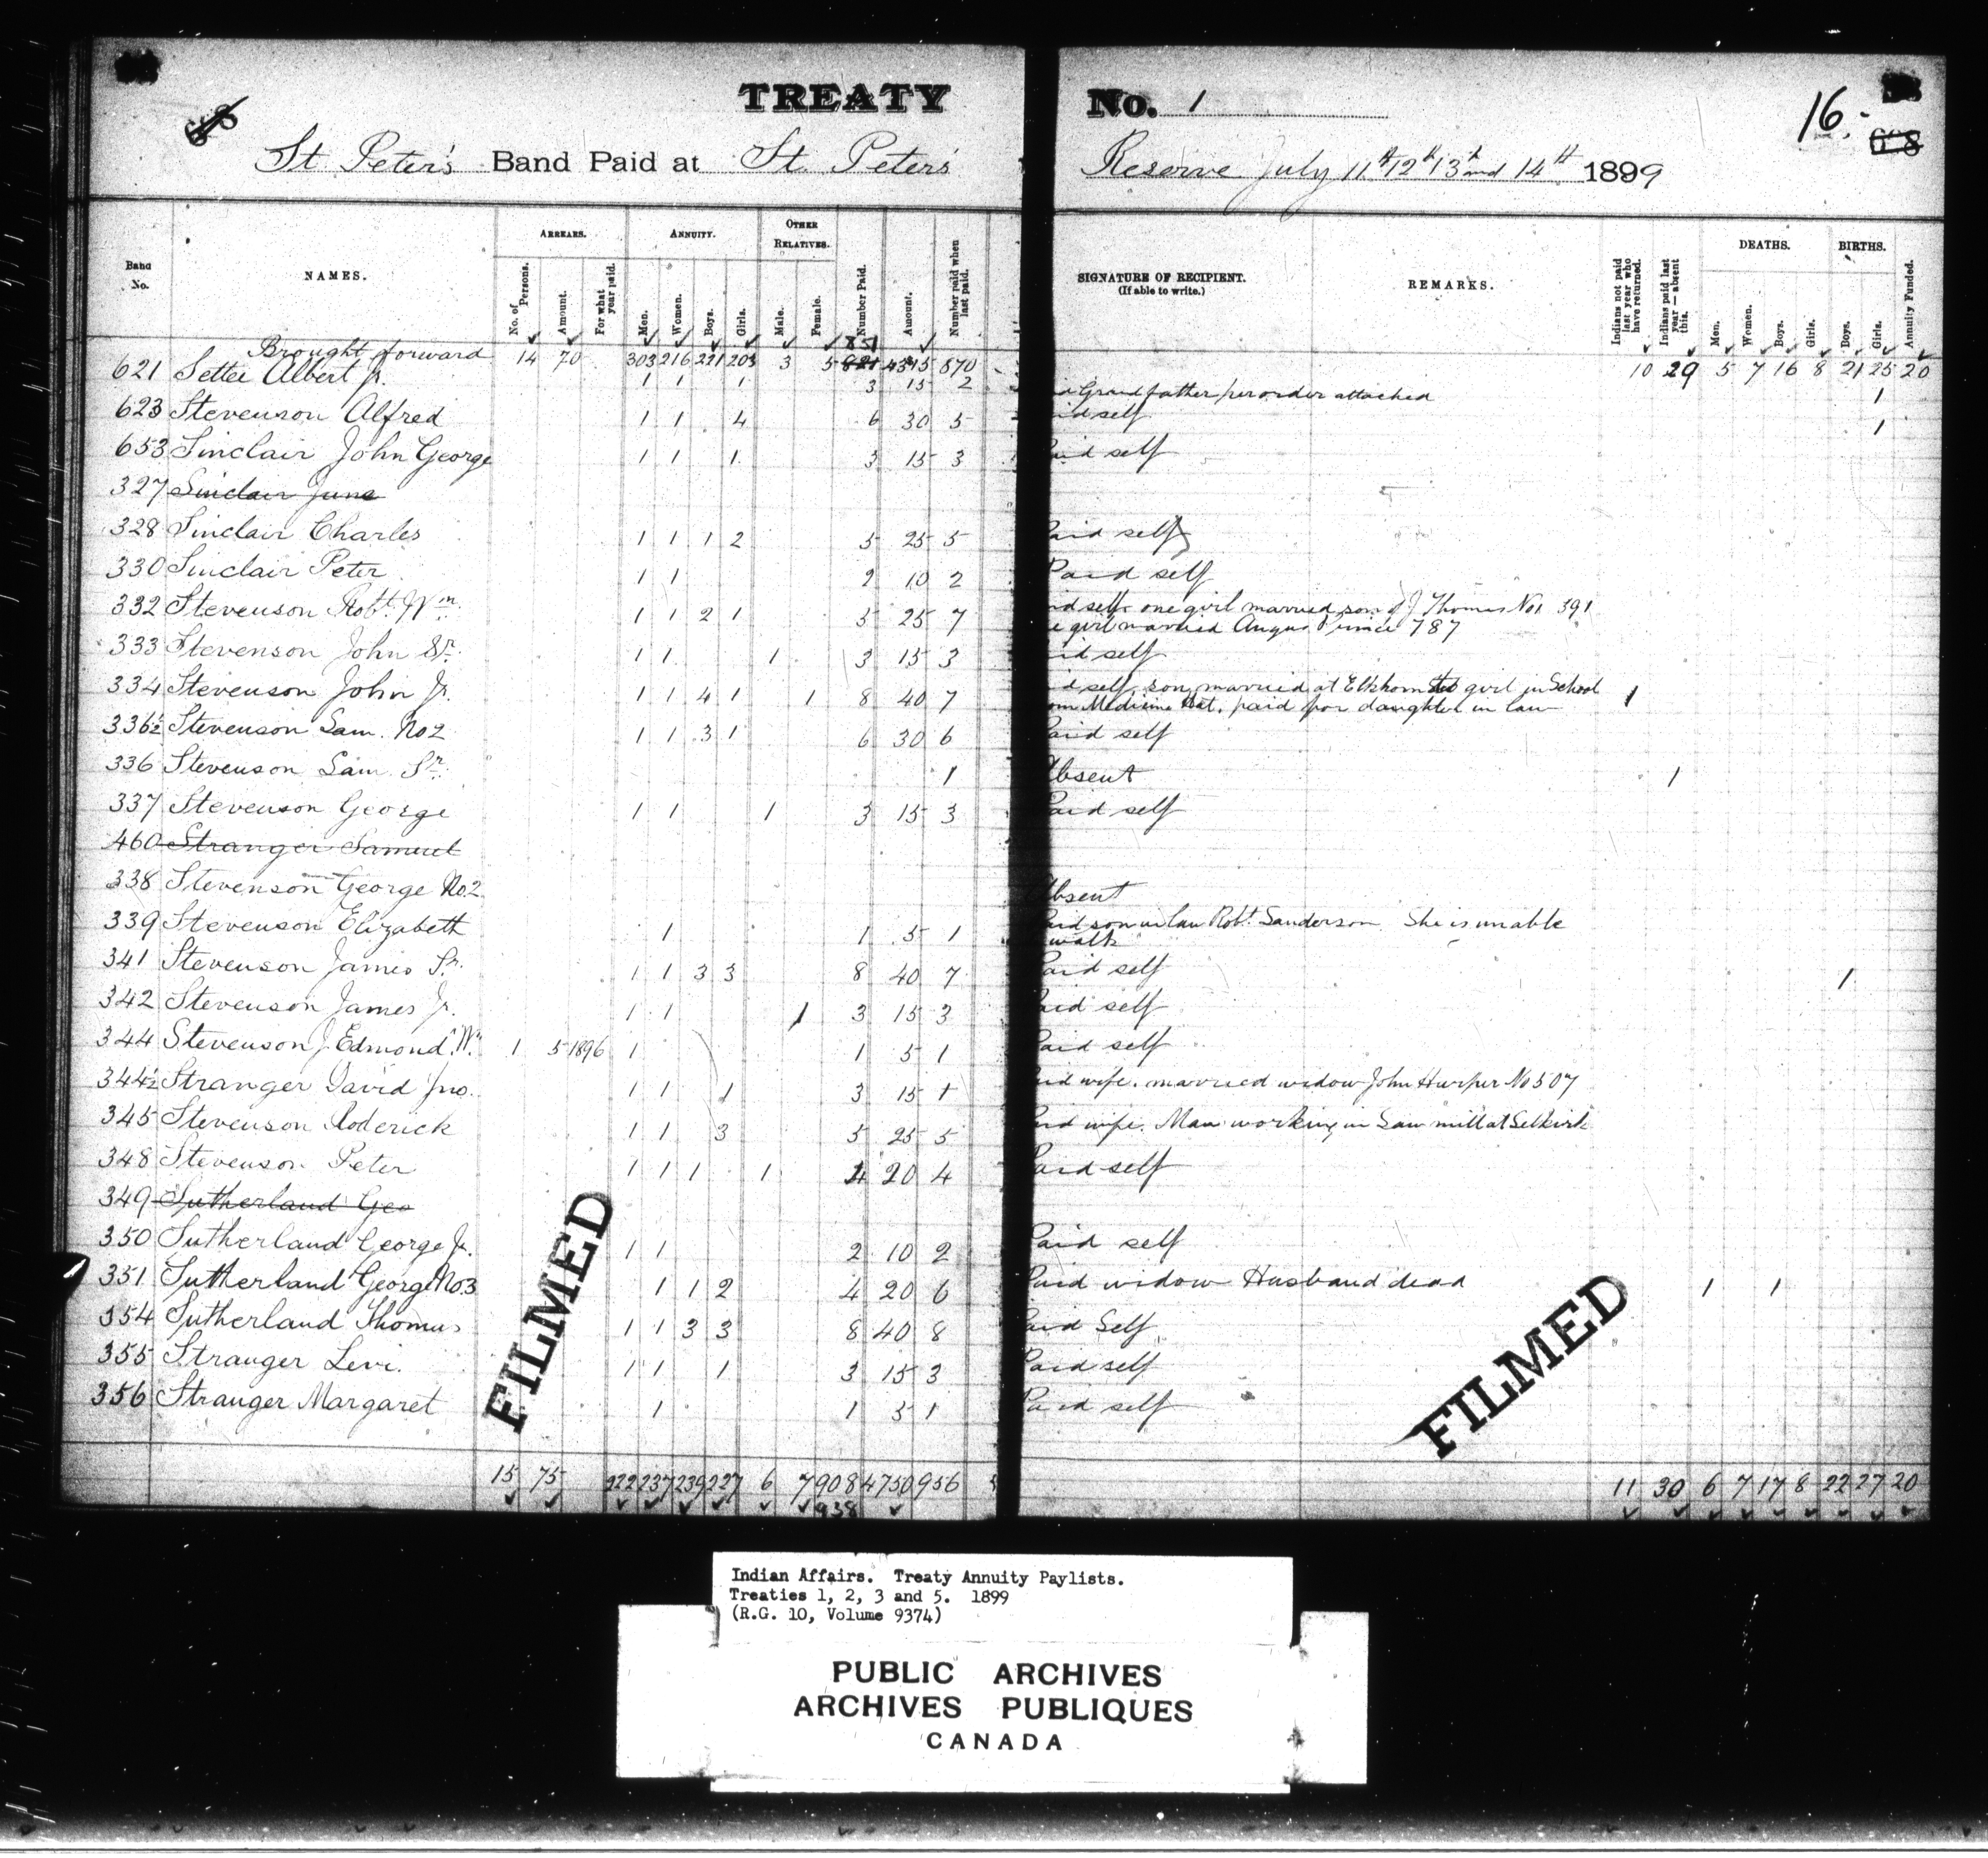 TREATY No. 1
16.
St Peter's Band Paid at St. Peters' Reserve July 11th 12th 13th and 14th 1899
Band No. NAMES. ARREARS. No. of Persons. Amount. For what year paid. ANNUITY. Men. Women. Boys. Girls. OTHER RELATIVES. Male. Female. Number Paid. Amount. Number paid when last paid. SIGNATURE OF RECIPIENT. (If able to write.) REMARKS. Indians not paid last year who have returned. Indians paid last year — absent this. DEATHS. Men. Women. Boys. Girls. BIRTHS. Boys. Girls. Annuity Funded.
851
Brought forward 14 70 303 216 221 203 3 5 821 4345 870 10 29 5 7 16 8 21 25 20
621 Settee Albert Jr. 1 1 1 3 15 2 Grandfather per order attached 1
623 Stevenson Alfred 1 1 4 6 30 5 id self 1
653 Sinclair John George 1 1 1 3 15 3 aid self
327 Sinclair June
328 Sinclair Charles 1 1 1 2 5 25 5 aid self
330 Sinclair Peter 1 1 2 10 2 Paid self
332 Stevenson Robt. Wm. 1 1 2 1 5 25 7 id self one girl married son of J Thomas No 391
e girl married Angus Prince 787
333 Stevenson John Sr. 1 1 1 3 15 3 id self
334 Stevenson John Jr. 1 1 4 1 1 8 40 7 d self, son married at Elkhorn girl in School 1
om Medicine Hat, paid for daughter in law
336½ Stevenson Sam. No 2 1 1 3 1 6 30 6 Paid self
336 Stevenson Sam Sr. 1 Absent 1
337 Stevenson George 1 1 1 3 15 3 Paid self
460 Stranger Samuel
338 Stevenson George No. 2 Absent
339 Stevenson Elizabeth 1 1 5 1 Paid son in law Robt Sanderson She is unable
walk
341 Stevenson James Sr. 1 1 3 3 8 40 7 Paid self 1
342 Stevenson James Jr. 1 1 1 3 15 3 Paid self
344 Stevenson J. Edmond Wm 1 5 1896 1 1 5 1 Paid self
344½ Stranger David Jno. 1 1 1 3 15 1 aid wife. married widow John Harper No 507
345 Stevenson Roderick 1 1 3 5 25 5 aid wife. Man working in Saw mill at Selkirk
348 Stevenson Peter 1 1 1 1 4 20 4 Paid self
349 Sutherland Geo
350 Sutherland George Jr. 1 1 2 10 2 Paid self
351 Sutherland George No. 3 1 1 2 4 20 6 Paid widow Husband dead 1 1
354 Sutherland Thomas 1 1 3 3 8 40 8 Paid Self
355 Stranger Levi. 1 1 1 3 15 3 Paid self
356 Stranger Margaret 1 1 5 1 Paid self
FILMED FILMED
15 75 222 237 239 227 6 7 908 4750 956 11 30 6 7 17 8 22 27 20
938
Indian Affairs. Treaty Annuity Paylists.
Treaties 1, 2, 3 and 5. 1899
(R.G. 10, Volume 9374)
PUBLIC ARCHIVES
ARCHIVES PUBLIQUES
CANADA